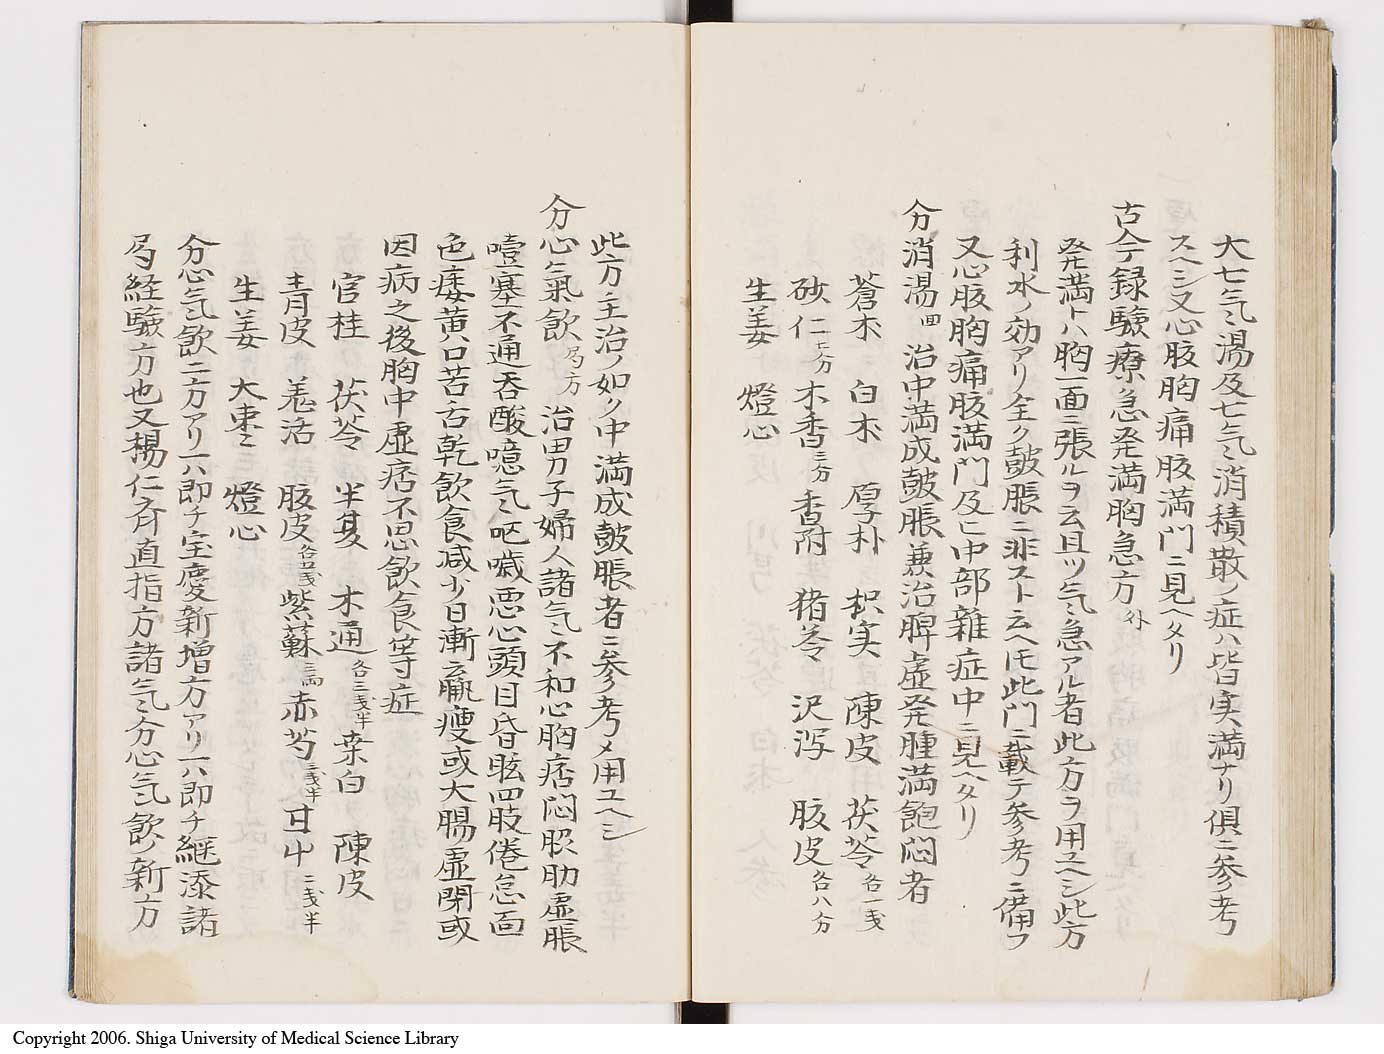 大七气湯及七气消積散ノ症ハ皆実満ナリ俱ニ參考
スヘシ又心腹胸痛腹満門ニ見ヘタリ
古今録驗療急発満胸急方 外
発満トハ胸一面ニ張ルヲ云且ツ气急アル者此方ヲ用ユヘシ此方
利水ノ効アリ全ク皷脹ニ非ストイヘトモ此門ニ載テ参考ニ備フ
又心腹胸痛腹満門及ヒ中部雜症中ニ見ヘタリ
分消湯 回 治中満成皷脹兼治脾虚発腫満飽悶者
蒼朮 白朮 厚朴 枳実 陳皮 茯苓各一戔
砂仁七分 木香三分 香附 猪苓 沢泻 腹皮各八分
生姜 燈心
此方主治ノ如ク中満成皷脹者ニ参考メ用ユヘシ
分心氣飲局方 治男子婦人諸气不和心胸痞悶脹肋虚脹
噎塞不通吞酸噫气呕噦悪心頭目昏眩四肢倦怠面
色痿黄口苦舌乾飲食减少日漸羸瘦或大腸虚閉或
因病之後胸中虚痞不思飲食等症
官桂 茯苓 半夏 木通各三戔半 桒白 陳皮
青皮 羌活 腹皮各四戔 紫蘇三両 赤芍三戔半 甘艸二戔半
生姜 大枣 燈心
分心气飲ニ方アリ一六即チ宝慶新増方アリ一六即チ継添諸
局経驗方也又楊仁斉直指方諸气分心气飲新方